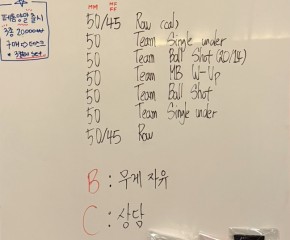 3종 20000
MM
50/45 Row (cal)
50 Team Single under
50 Team Ball Shot (20/14)
50 Team MB W-Up
50 Team Ball Shot
50 Team Single under
50/45 Row
B : 무게 자유
C : 상담